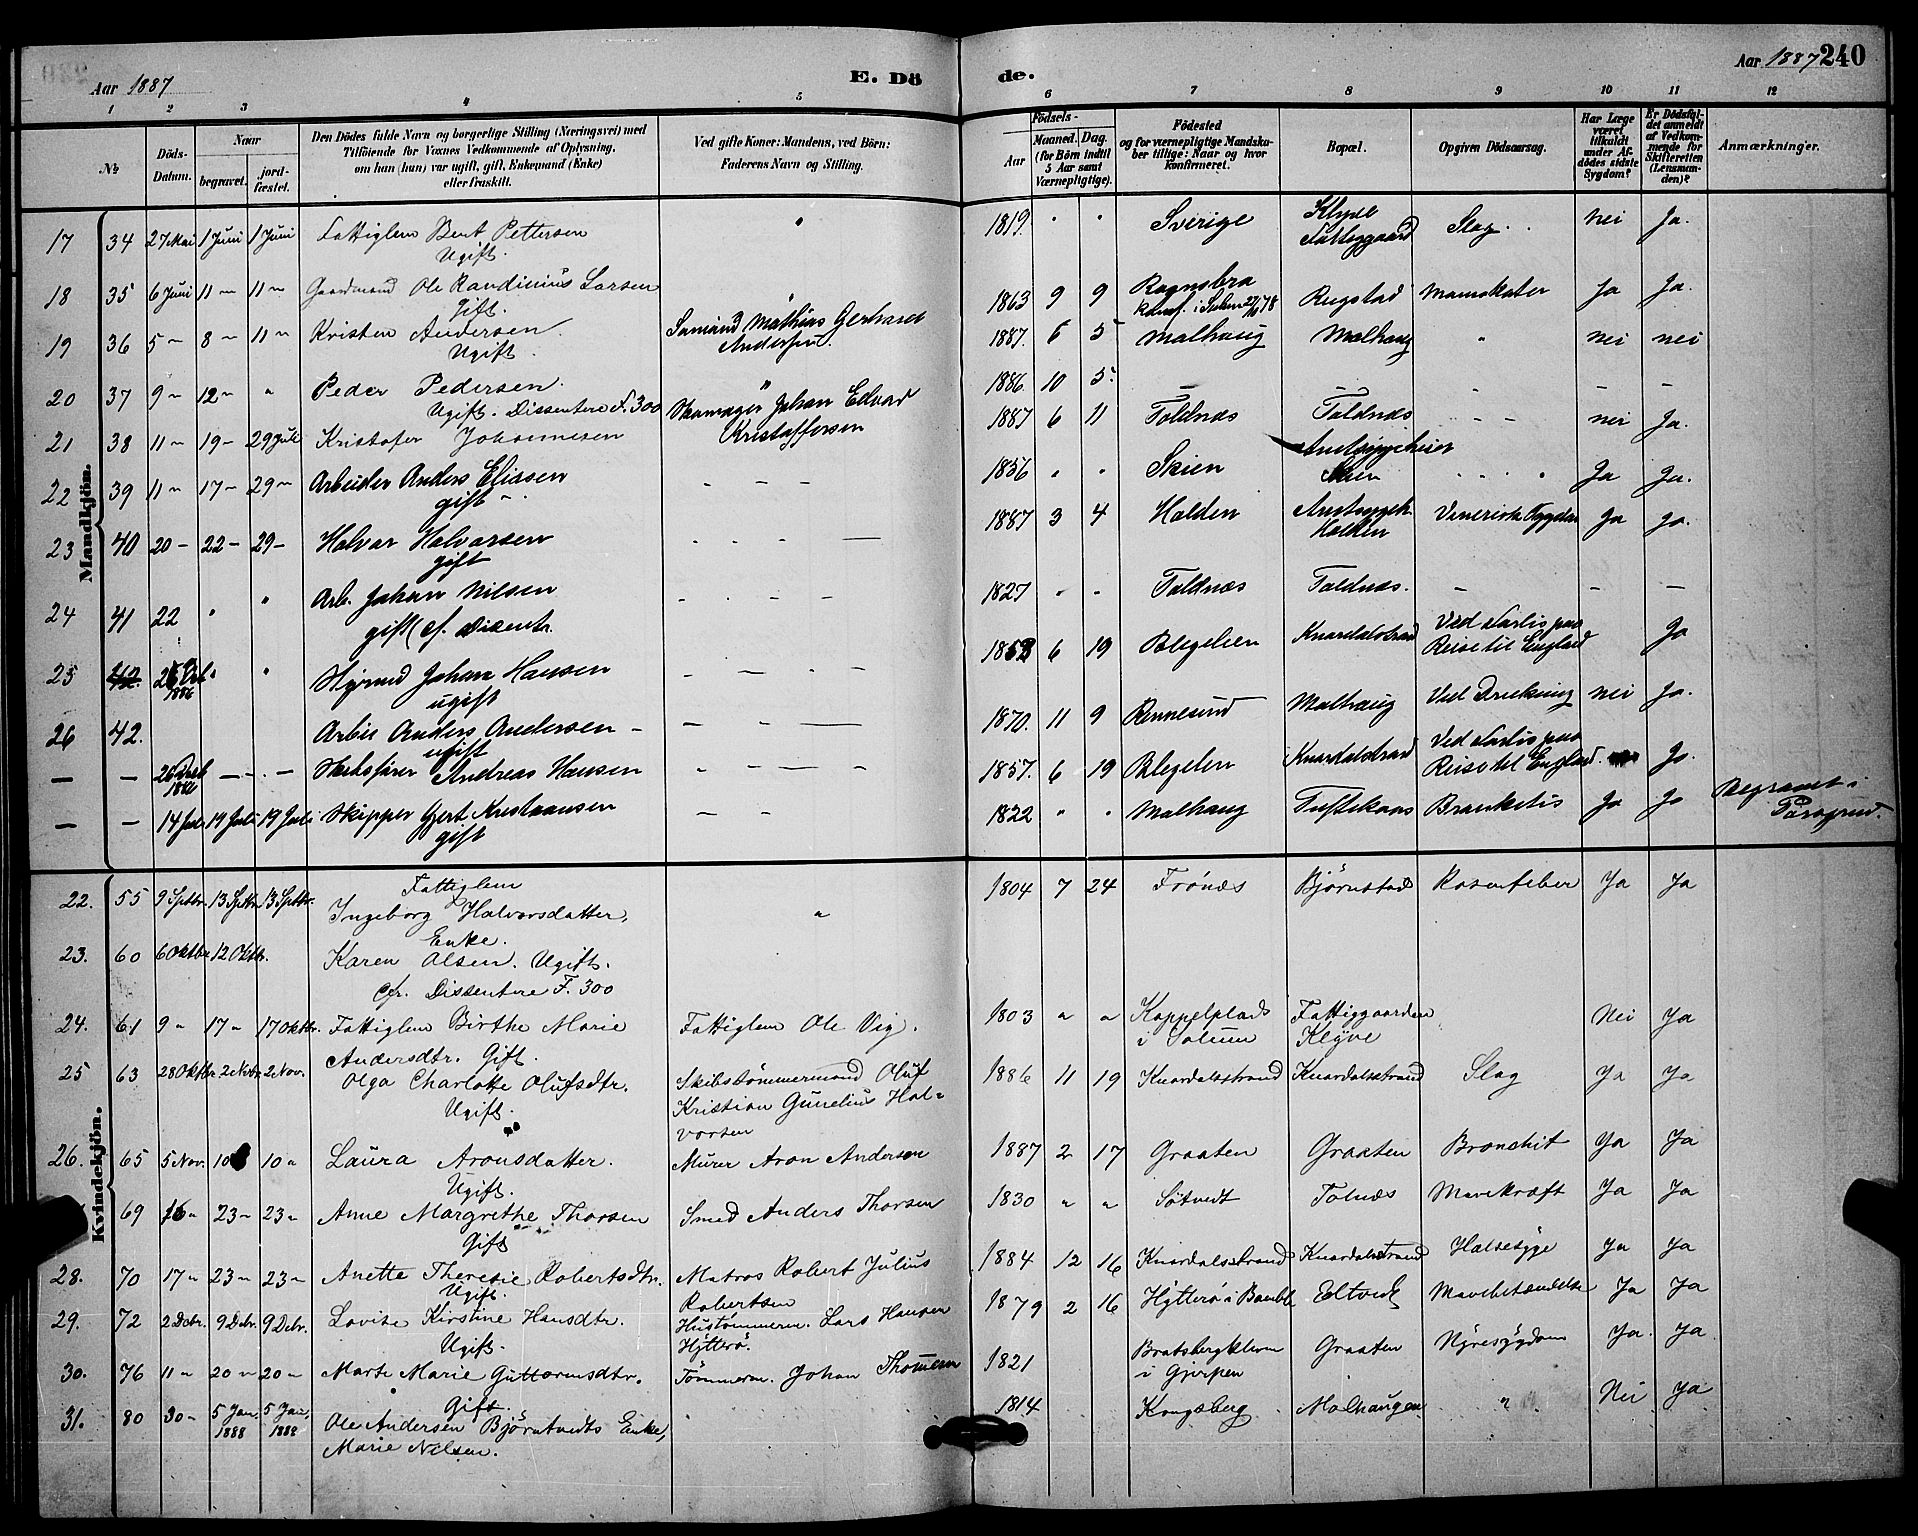 Aar 1887
E. Dö
de.
Aar 1887 240
1 2 3 4 5 6 7 8 9 10 11 12
No
Döds-
Datum.
Naar
begravet.
jord-
fæstet.
Den Dödes fulde Navn og borgerlige Stilling (Næringsvei) med
Tilföiende for Voxnes Vedkommende af Oplysning,
om han (hun) var ugift, gift, Enkemand (Enke)
eller fraskilt.
Ved gifte Koner: Mandens, ved Börn:
Faderens Navn og Stilling.
Födsels-
Aar
Maaned. Dag.
(for Börn indtil
5 Aar samt
Værnepligtige).
Födested
og for værnepligtige Mandska-
ber tillige: Naar og hvor
konfirmeret.
Bopæl.
Opgiven Dödsaarsag.
Har Læge
været
tilkaldt
under Af-
dödes sidste
Sygdom?
Er Dödsfal-
det anmeldt
af Vedkom-
mende for
Skifteretten
(Lensman-
den)?
Anmærkninger.
Mandkjön.
17 34 27 Mai 1 Juni 1 Juni Fattiglem Bent Pettersen 1819. " " Sverige Klyve Slag. nei Ja.
Ugift. Fattiggaard
18 35 6 Juni 11 " 11 " Gaardmand Ole Randinius Larsen 1863 9 9 Rugstad Ja Ja.
Gift.
19 36 5 " 8 " 11 " Kristen Andersen Sømand Mathias Gerhard 1887. 6 5 Malhaug Malhaug " nei nei
Ugift. Andersen.
20 37 9 " 12 " " Peder Pedersen. " 1886 10 5. – –
Ugift. Dissentere F. 300
21 38 11 " 19 - 29 Juli Kristofer Johannesen Johan Edvard 1887 6 11 Toldnæs Toldnæs nei Ja.
Kristoffersen
22 39 11 " 17 - 29 " Arbeider Anders Eliasen 1856 " " Skien Amtssygehuset Ja Ja.
gift Skien
23 40 20 - 22 - 29 - Halvar Halvarsen 1887 3 4 Holden Amtssygeh. Venerisk Sygdom Ja Ja.
gift Holden
24 41 22 " " Arb. Johan Nilsen 1827 " " Toldnæs Toldnæs. – – –
gift (cf. Disentr.
25 42. 1886 " " Johan Hansen 6 19 Blegelien Knardalstrand Ved Forlis paa Ja
ugift Reise til England
26 42. Arbei Anders Andersen 1870. 11 9 Malhaug Ved Drukning nei Ja.
ugift
– – 26 Andreas Hansen 1857. 6 19 Blegelien Knardalstrand Ved Forlis paa Ja.
Reise til England.
– – 14 Juli 19 Juli 19 Juli Skipper Gjert Kristiansen 1822 " " Malhaug Ja Ja Begravet i
gift Porsgrund.
Kvindekjön.
22. 55 9 Septbr. 13 Septbr. 13 Septbr. Fattiglem 1804 7 24 Frönæs Björnstad Rosenfeber Ja Ja
Ingeborg Halvorsdatter, "
Enke.
23. 60 6 Oktbr 12 Oktbr. Karen Olsen. Ugift.
Cfr. Dissentere F. 300
24. 61 9 " 17 " 17 Oktbr. Fattiglem Birthe Marie Fattiglem Ole Vig. 1803 " " Kappelplads Fattiggaarden Nei Ja
Andersdtr. Gift. i Solum Klyve
25 63 28 Oktbr 2 Novbr. 2 Nov. Olga Charlotte Olufsdtr. Skibstömmermand Oluf 1886 11 19 Knardalsstrand Knardalsstrand Slag Ja Ja
Ugift. Kristian Gunelius Hal-
vorsen
26. 65 5 Nov. 10 10 " Laura Aronsdatter. Murer Aron Andersen 1887 2 17 Graaten Graaten Bronchit Ja Ja
Ugift.
69 16 " 23 " 23 " Anne Margrethe Thorsen Smed Anders Thorsen 1830 " " Sötvedt Tolnæs Mavekræft Ja Ja
Gift
28. 70 17 " 23 " 23 " Anette Theresie Robertsdtr. Matros Robert Julius 1884 12 16 Knardalsstrand Knardalsstrand Halsesyge Ja Ja
Ugift. Robertsen
29. 72 2 Debr. 9 Debr. 9 Debr. Lovise Kirstine Hansdtr. Hustömmerm. Lars Hansen 1879 2 16 Hytterö i Bamble Eltvedt Mavebetændelse Ja Ja
Ugift. Hytterö.
30. 76 11 " 20 " 20 " Marte Marie Guttormsdtr. Tömmerm. Johan Thomesen 1821 Bratsbergkleven Graaten Nyresygdom Ja. Ja.
Gift. i Gjerpen
31. 80 30 - 5 Jan. 1888 5 Jan. 1888 Ole Andersen Björntvedts Enke, 1814 Kongsberg Malhaugen " Nei Ja
Marie Nilsen.